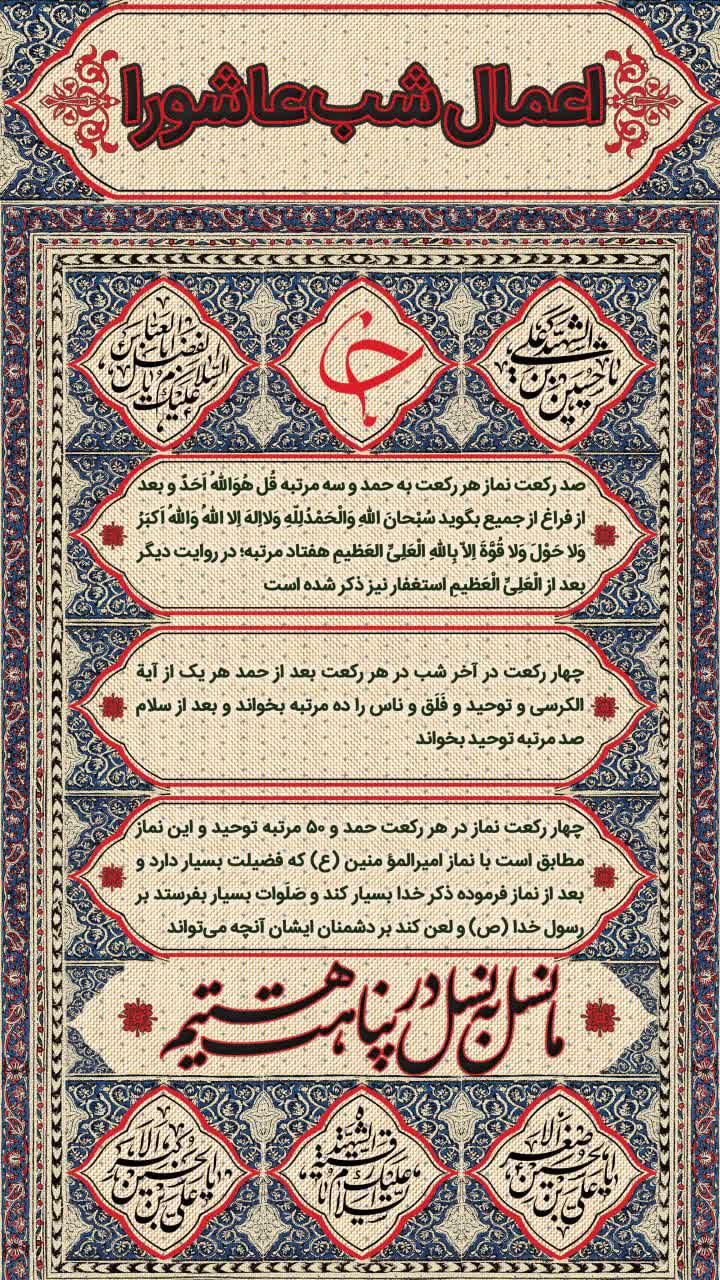 اعمال شب عاشورا
یا حسین بن علی الشهید
السلام علیک یا اباالفضل العباس
صد رکعت نماز هر رکعت به حمد و سه مرتبه قُل هُوَاللهُ اَحَدٌ و بعد
از فراغ از جمیع بگوید سُبْحانَ اللهِ وَالْحَمْدُلِلّهِ وَلااِلهَ اِلا اللهُ وَاللهُ اَکبَرُ
وَلا حَوْلَ وَلا قُوَّةَ اِلاّ بِاللهِ الْعَلِىِّ العَظیمِ هفتاد مرتبه؛ در روایت دیگر
بعد از الْعَلِىِّ الْعَظیمِ استغفار نیز ذکر شده است
چهار رکعت در آخر شب در هر رکعت بعد از حمد هر یک از آیة
الکرسی و توحید و فَلَق و ناس را ده مرتبه بخواند و بعد از سلام
صد مرتبه توحید بخواند
چهار رکعت نماز در هر رکعت حمد و ۵۰ مرتبه توحید و این نماز
مطابق است با نماز امیرالمؤ منین (ع) که فضیلت بسیار دارد و
بعد از نماز فرموده ذکر خدا بسیار کند و صَلَوات بسیار بفرستد بر
رسول خدا (ص) و لعن کند بر دشمنان ایشان آنچه می‌تواند
ما نسل به نسل در پناهت هستیم
یا علی بن الحسین الاصغر
السلام علیک یا رقیة الشهیدة
یا علی بن الحسین الاکبر